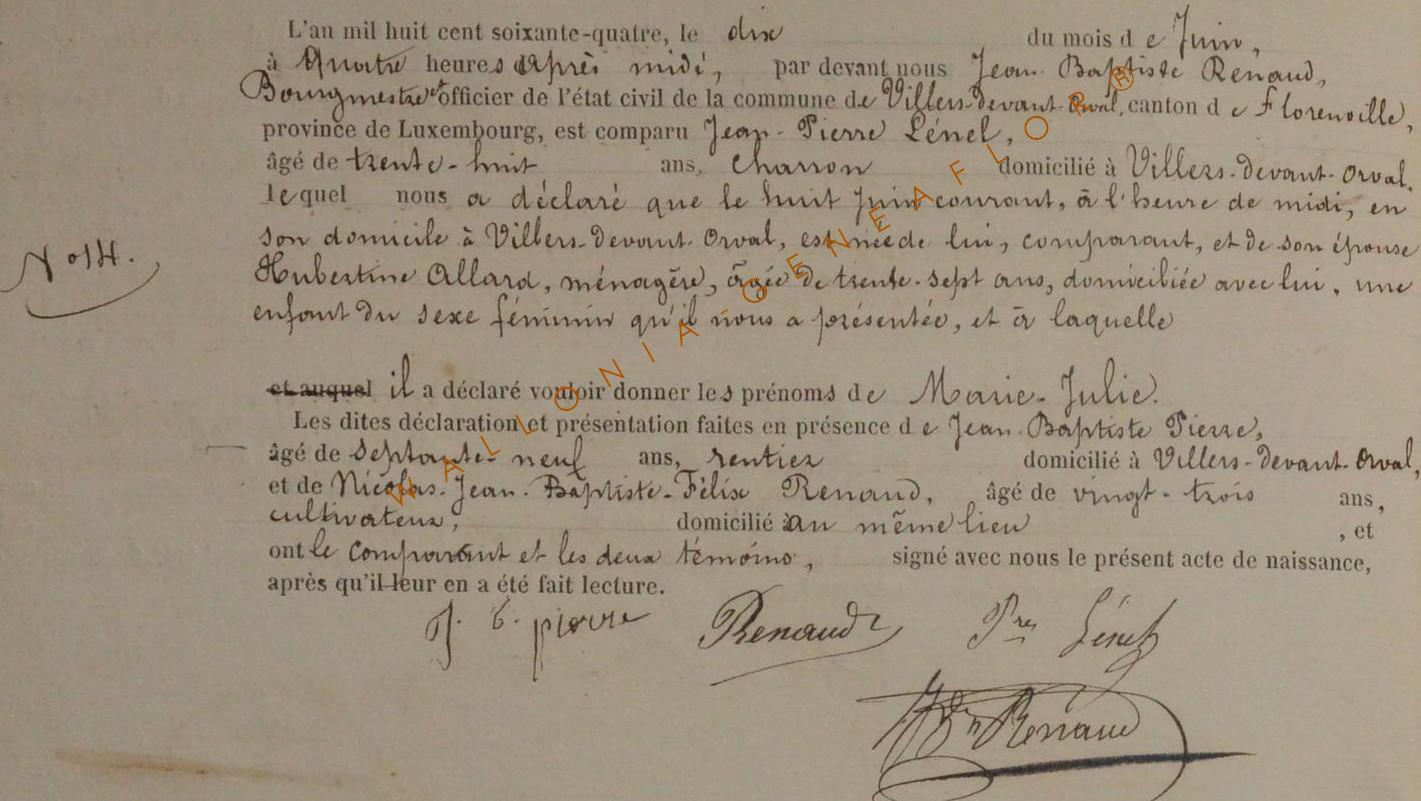 L'an mil huit cent soixante-quatre, le dix du mois de Juin,
à Quatre heures après midi, par devant nous Jean-Baptiste Renaud,
Bourgmestre et officier de l'état civil de la commune de Villers-devant-Orval, canton de Florenville,
province de Luxembourg, est comparu Jean-Pierre Lénel,
âgé de trente-huit ans, charron domicilié à Villers-devant-Orval,
lequel nous a déclaré que le huit Juin courant, à l'heure de midi, en
son domicile à Villers-devant-Orval, est née de lui, comparant, et de son épouse
No 14.
Hubertine Allard, ménagère, âgée de trente-sept ans, domiciliée avec lui, une
enfant du sexe féminin qu'il nous a présentée, et à laquelle
et auquel il a déclaré vouloir donner les prénoms de Marie-Julie.
Les dites déclaration et présentation faites en présence de Jean-Baptiste Pierre,
âgé de septante-neuf ans, rentier domicilié à Villers-devant-Orval,
et de Nicolas-Jean-Baptiste-Félix Renaud, âgé de vingt-trois ans,
cultivateur, domicilié au même lieu , et
ont le comparant et les deux témoins, signé avec nous le présent acte de naissance,
après qu'il leur en a été fait lecture.
J. B. pierre Renaud Prre Lénel
Renaud
WALLONIA GENEAFLOR ®